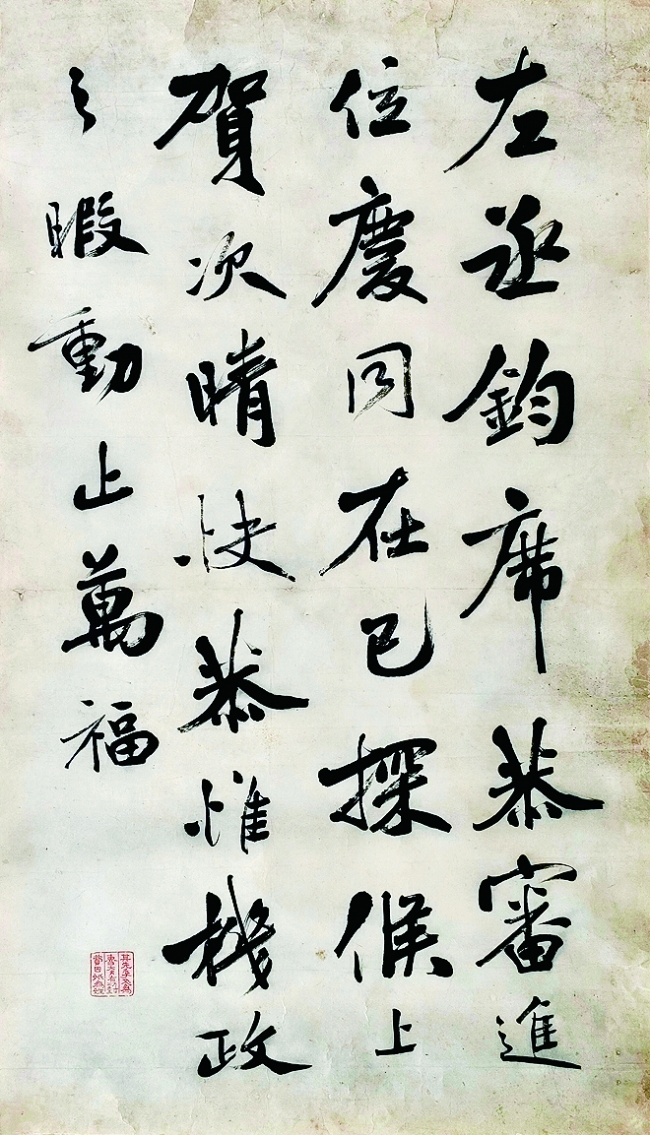 左丞鈞席恭審進
位慶同在已探候上
賀次晴快恭惟機政
之暇動止萬福